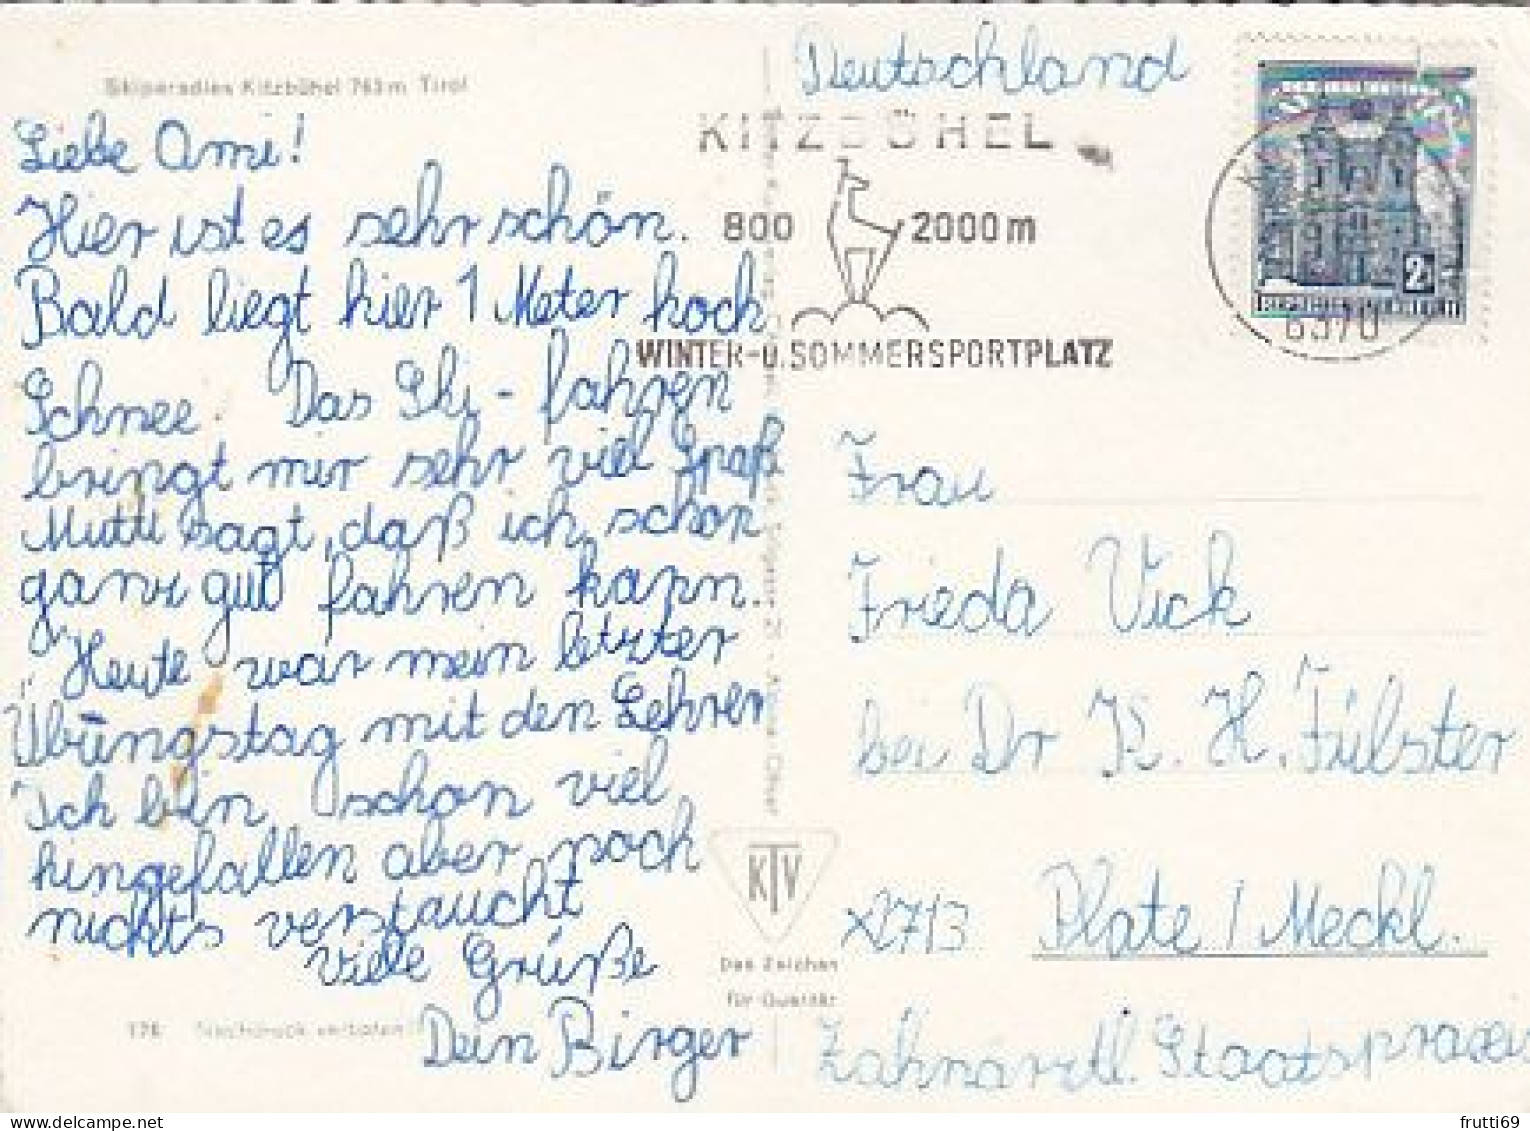 Skiparadies Kitzbühel 763 m Tirol
Liebe Omi!
Hier ist es sehr schön.
Bald liegt hier 1 Meter hoch
Schnee. Das Ski-fahren
bringt mir sehr viel Spaß
Mutti sagt, daß ich schon
ganz gut fahren kann.
Heute war mein letzter
Übungstag mit den Lehrer
Ich bin schon viel
hingefallen aber noch
nichts verstaucht
Viele Grüße
Dein Birger
176 Nachdruck verboten
KTV
Das Zeichen
für Qualität
Deutschland
KITZBÜHEL
800 2000 m
WINTER-U.SOMMERSPORTPLATZ
2
6370
Frau
Frieda Vick
bei Dr K. H. Fülster
x2713 Plate / Meckl.
Zahnärztl. Staatspraxis
frutti69